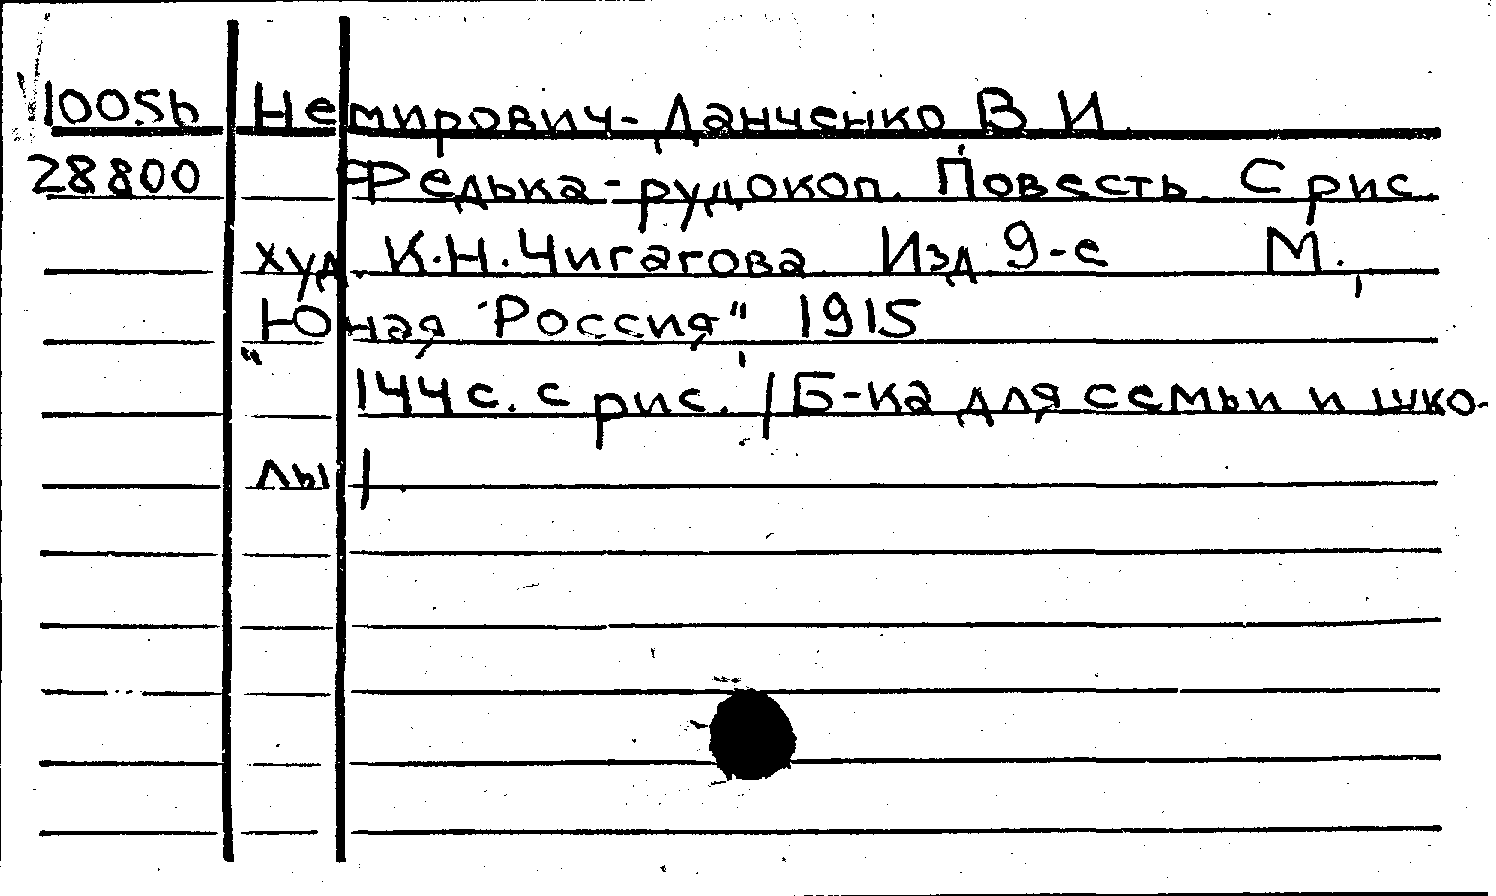 10056 Немирович-Данченко В И.
28800 Редька-рудокоп. Повесть. С рис.
худ. К.Н.Чигагова Изд 9-е М.,
"Юная Россия" 1915
144 с. с рис. /Б-ка для семьи и шко-
лы/.